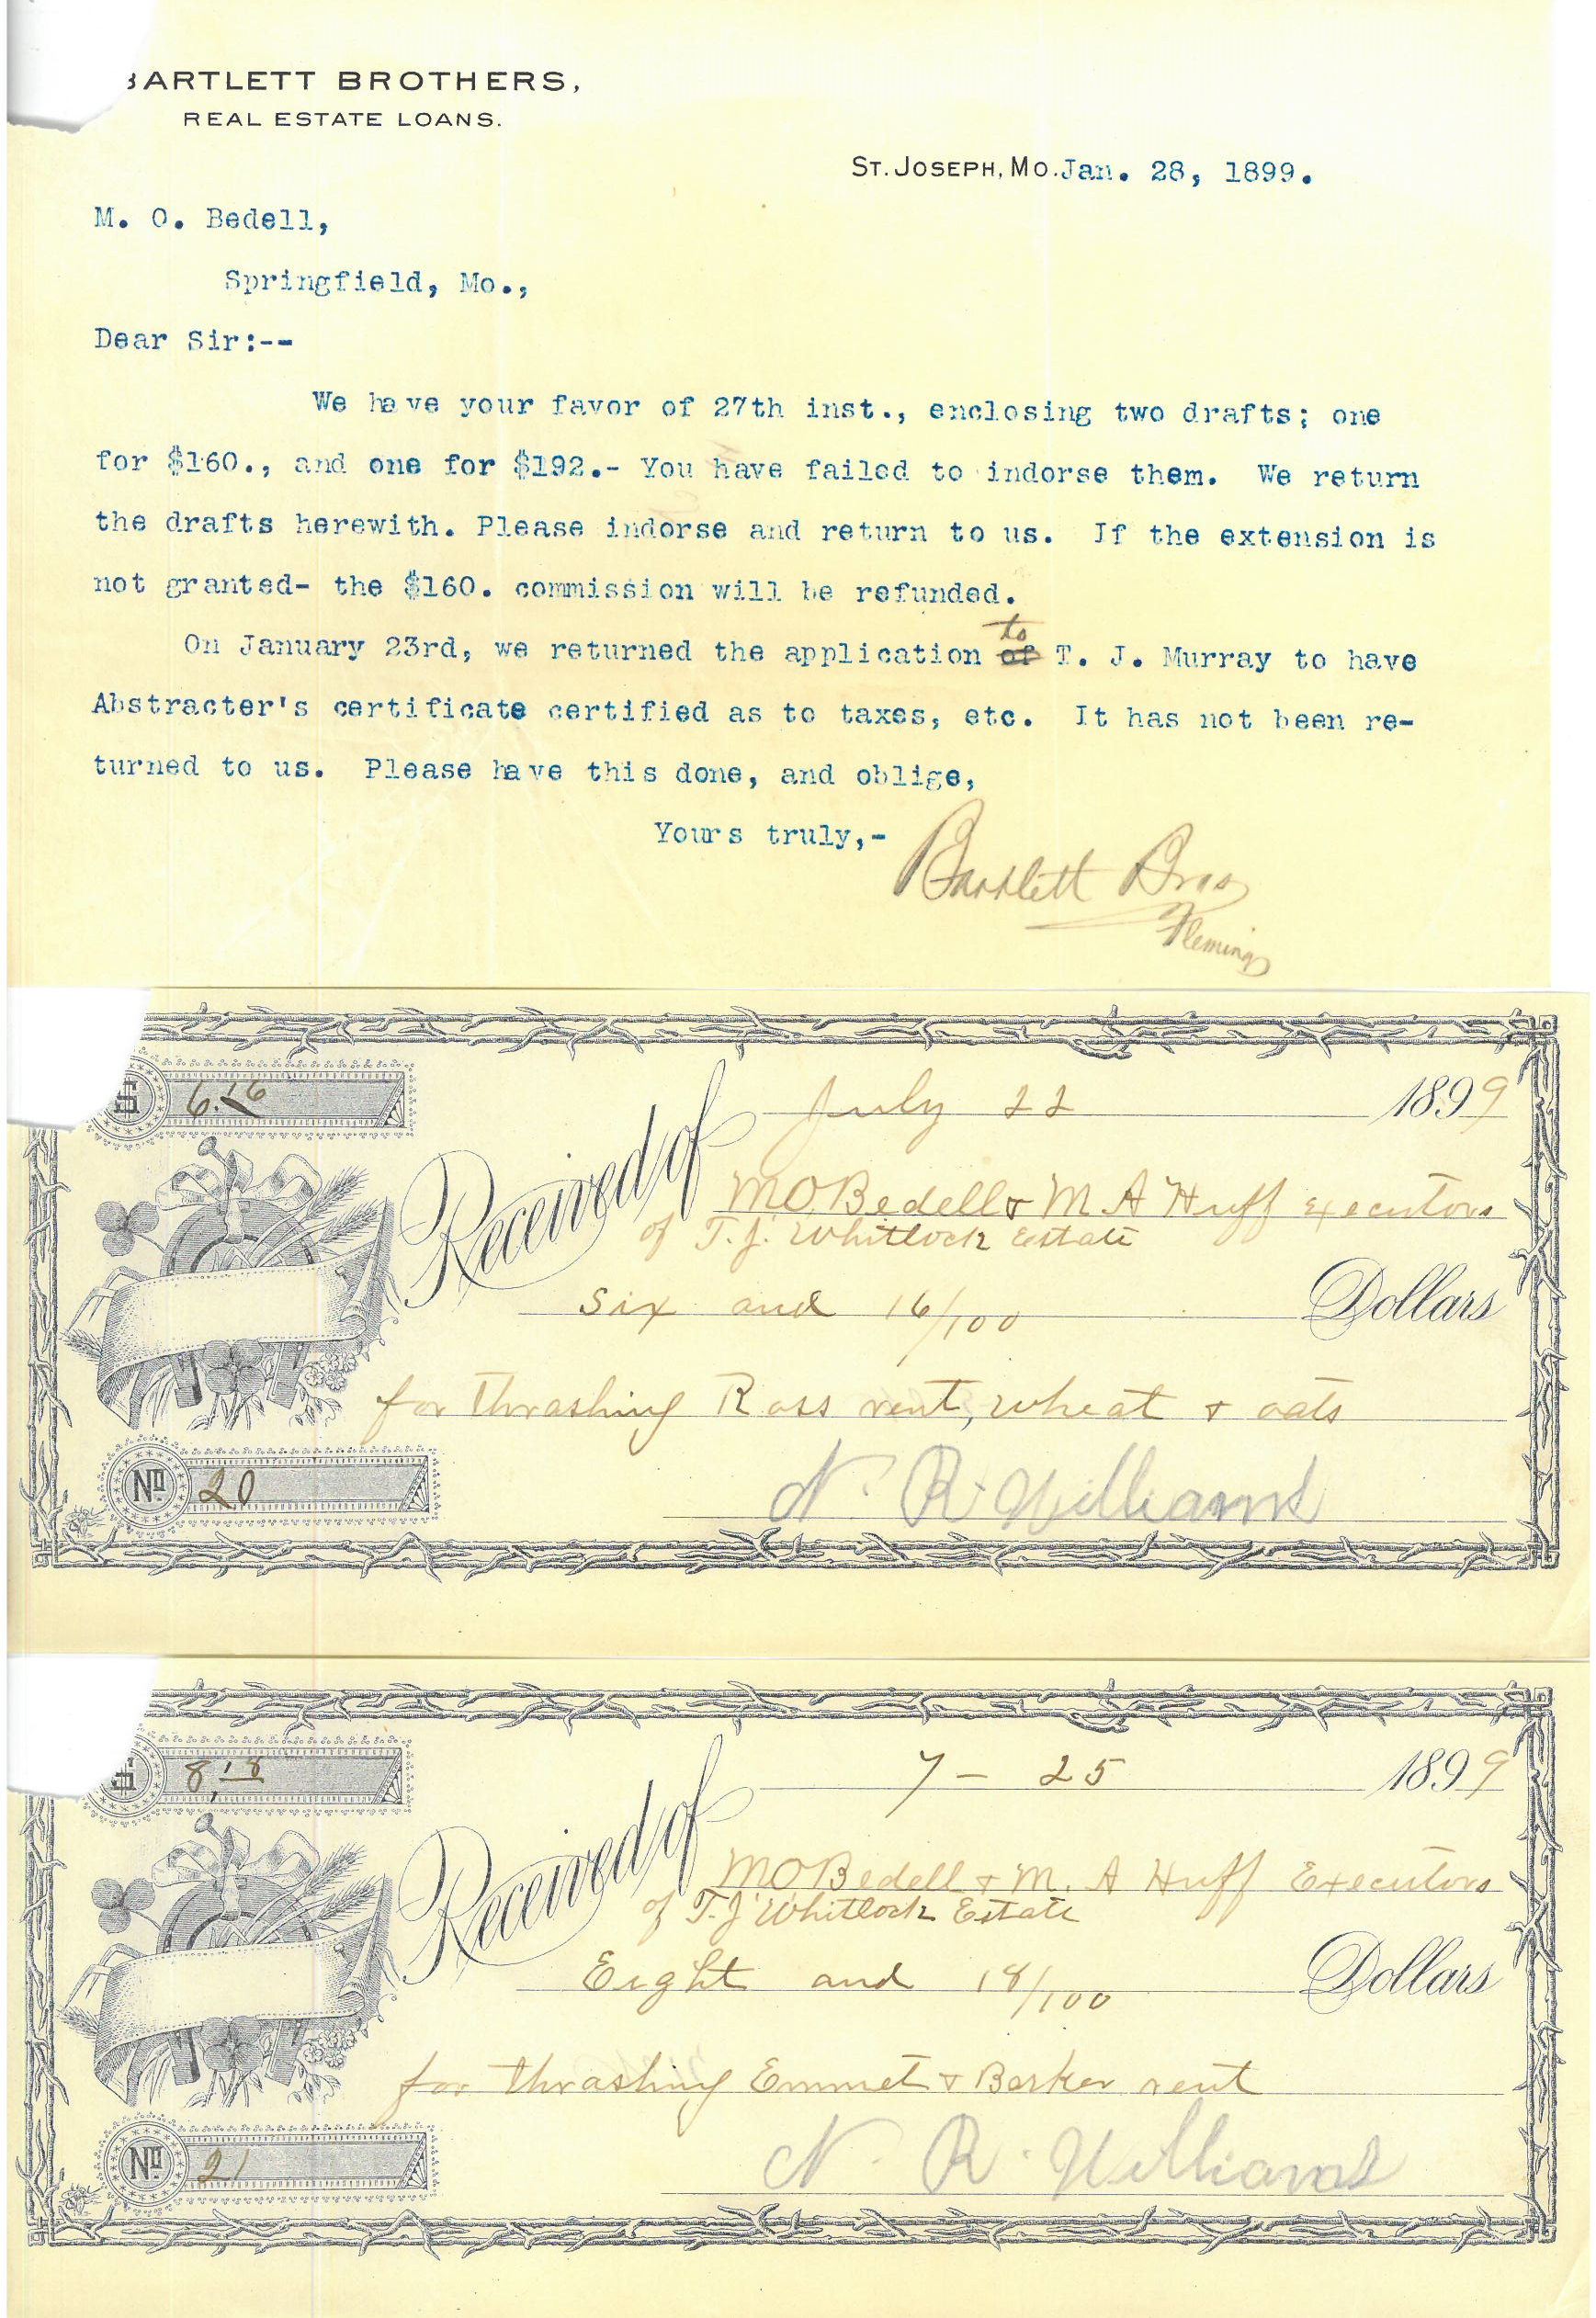 BARTLETT BROTHERS,
REAL ESTATE LOANS.
ST. JOSEPH, MO. Jan. 28, 1899.
M. O. Bedell,
Springfield, Mo.,
Dear Sir:--
We have your favor of 27th inst., enclosing two drafts; one
for $160., and one for $192.- You have failed to indorse them. We return
the drafts herewith. Please indorse and return to us. If the extension is
not granted- the $160. commission will be refunded.
to
On January 23rd, we returned the application of T. J. Murray to have
Abstracter's certificate certified as to taxes, etc. It has not been re-
turned to us. Please have this done, and oblige,
Yours truly,-
Bartlett Bros
Fleming
$ 6.16
July 22 1899
Received of M O Bedell & M A Huff Executors
of T. J. Whitlock Estate
Six and 16/100 Dollars
for thrashing Ross rent, wheat & oats
No 20
N. R. Williams
$ 8.18
7 - 25 1899
Received of M O Bedell & M. A Huff Executors
of T. J Whitlock Estate
Eight and 18/100 Dollars
for thrashing Emmet & Barker rent
No 21
N. R. Williams